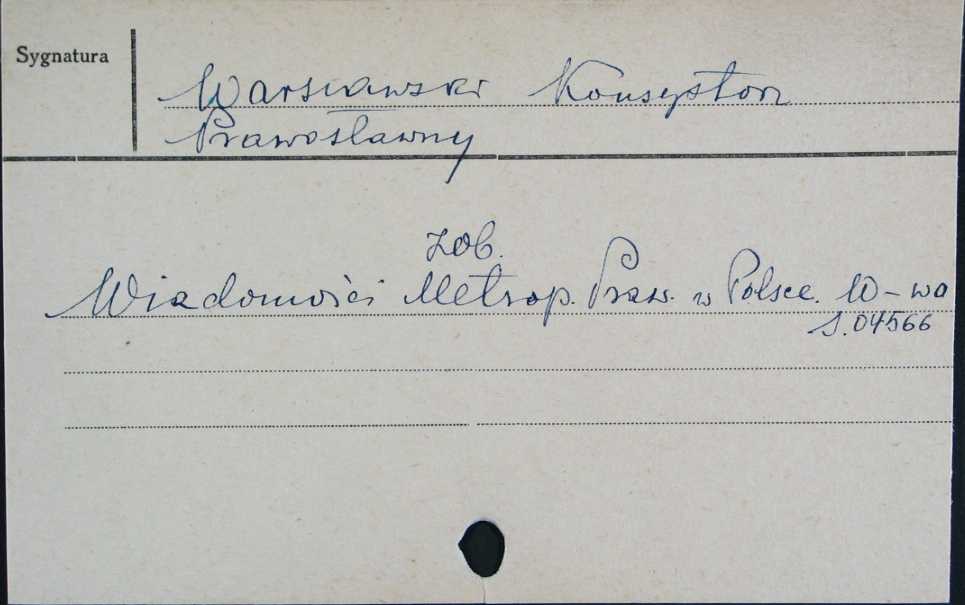 Sygnatura
Warszawski Konsystorz
Prawosławny
zob.
Wiadomości Metrop. Praw. w Polsce. W-wa
S.04566